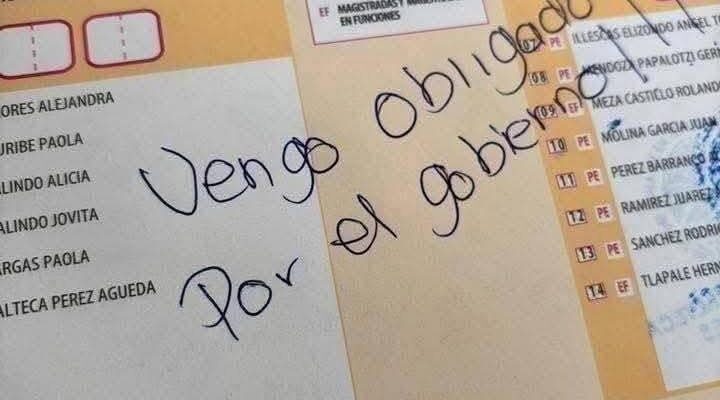 EF MAGISTRADAS Y
EN FUNCIONES
ORES ALEJANDRA
URIBE PAOLA
ALINDO ALICIA
ALINDO JOVITA
ARGAS PAOLA
ALTECA PEREZ AGUEDA
Vengo obligado
Por el gobierno!!!
07 PE ILLESCAS ELIZONDO ANGEL T
08 PE MENDOZA PAPALOTZI GER
09 EF MEZA CASTIELLO ROLAND
10 PE MOLINA GARCIA JUAN
11 PE PEREZ BARRANCO
12 PE RAMIREZ JUAREZ
13 PE SANCHEZ RODRI
14 EF TLAPALE HERN